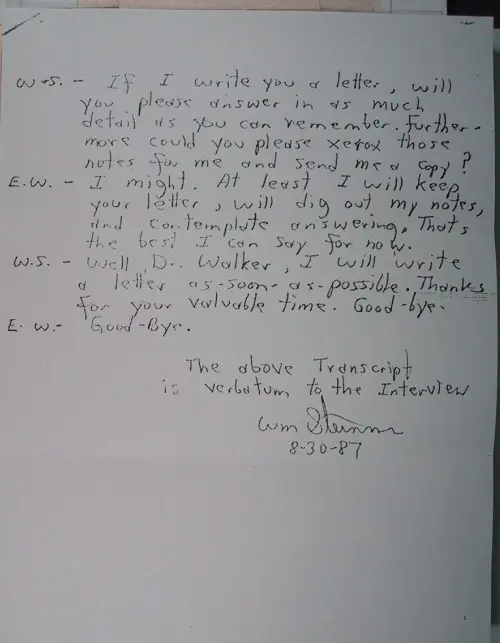 W.S. - If I write you a letter, will
you please answer in as much
detail as you can remember. Further-
more could you please xerox those
notes for me and send me a copy?
E.W. - I might. At least I will keep
your letter, will dig out my notes,
and contemplate answering. That's
the best I can say for now.
W.S. - Well, Dr. Walker, I will write
a letter as-soon-as-possible. Thanks
for your valuable time. Good-bye.
E.W. - Good-Bye.
The above Transcript
is verbatum to the Interview
Wm
8-30-87